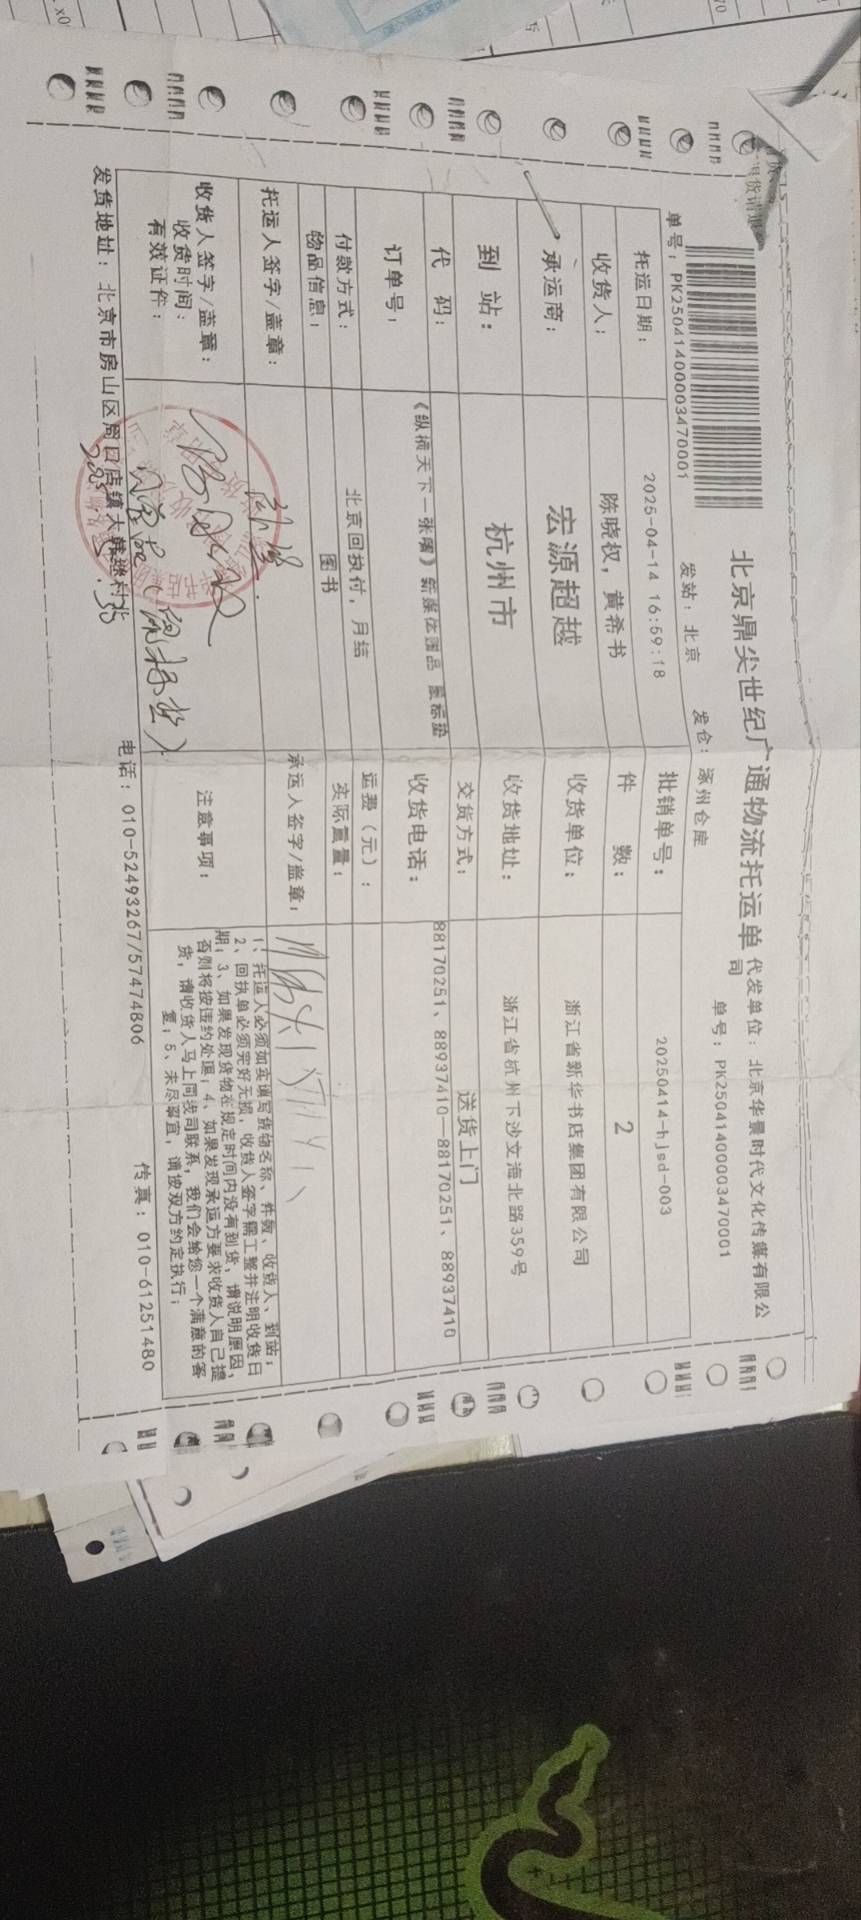 北京鼎尖世纪广通物流托运单
代发单位：北京华景时代文化传媒有限公司
单号：PK25041400003470001
发站：北京
发仓：涿州仓库
单号：PK25041400003470001
托运日期： 2025-04-14 16:59:18 批销单号： 20250414-hjsd-003
收货人： 陈晓权，黄希书 件 数： 2
承运商： 宏源超越 收货单位： 浙江省新华书店集团有限公司
到 站： 杭州市 收货地址： 浙江省杭州下沙文海北路359号
代 码： 《纵横天下一张嘴》新媒体赠品 鼠标垫 交货方式： 送货上门
订单号： 收货电话： 88170251、88937410—88170251、88937410
付款方式： 北京回执付，月结 运费（元）：
物品信息： 图书 实际重量：
托运人签字/盖章： 承运人签字/盖章：
收货人签字/盖章：
收货时间：
有效证件：
注意事项：
1、托运人必须如实填写货物名称、件数、收货人、到站；
2、回执单必须完好无损，收货人签字需工整并注明收货日
期；3、如果发现货物在规定时间内没有到货，请说明原因，
否则将按违约处理；4、如果发现承运方要求收货人自己提
货，请收货人马上同我司联系，我们会给您一个满意的答
复；5、未尽事宜，请按双方约定执行；
发货地址：北京市房山区周口店镇大韩继村北
电话：010-52493267/57474806
传真：010-61251480